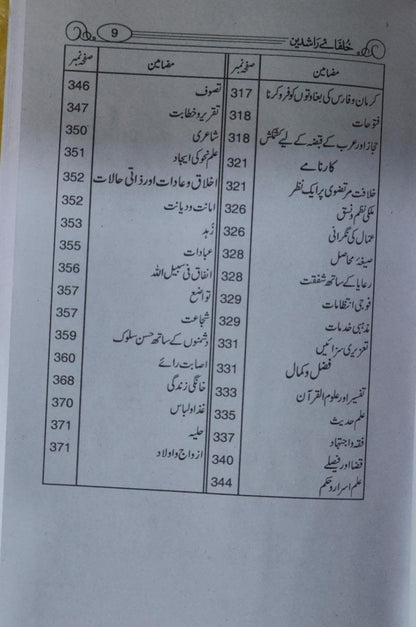 خلفائے راشدین
9
مضامین صفحہ نمبر
کرمان و فارس کی بغاوتوں کو فرو کرنا 317
فتوحات 318
حجاز اور عرب کے قبضہ کے لیے کشمکش 318
کارنامے 321
خلافت مرتضوی پر ایک نظر 321
ملکی نظم و نسق 326
عمال کی نگرانی 326
صیغہ محاصل 328
رعایا کے ساتھ شفقت 328
فوجی انتظامات 329
مذہبی خدمات 329
تعزیری سزائیں 331
فضل و کمال 331
تفسیر اور علوم القرآن 333
علم حدیث 335
فقہ و اجتہاد 337
قضا اور فیصلے 340
علم اسرار و حکم 344
مضامین صفحہ نمبر
تصوف 346
تقریر و خطابت 347
شاعری 350
علم نحو کی ایجاد 351
اخلاق و عادات اور ذاتی حالات 352
امانت و دیانت 352
زہد 353
عبادات 355
انفاق فی سبیل اللہ 356
تواضع 357
شجاعت 357
دشمنوں کے ساتھ حسن سلوک 359
اصابت رائے 360
خانگی زندگی 368
غذا و لباس 370
حلیہ 371
ازواج و اولاد 371